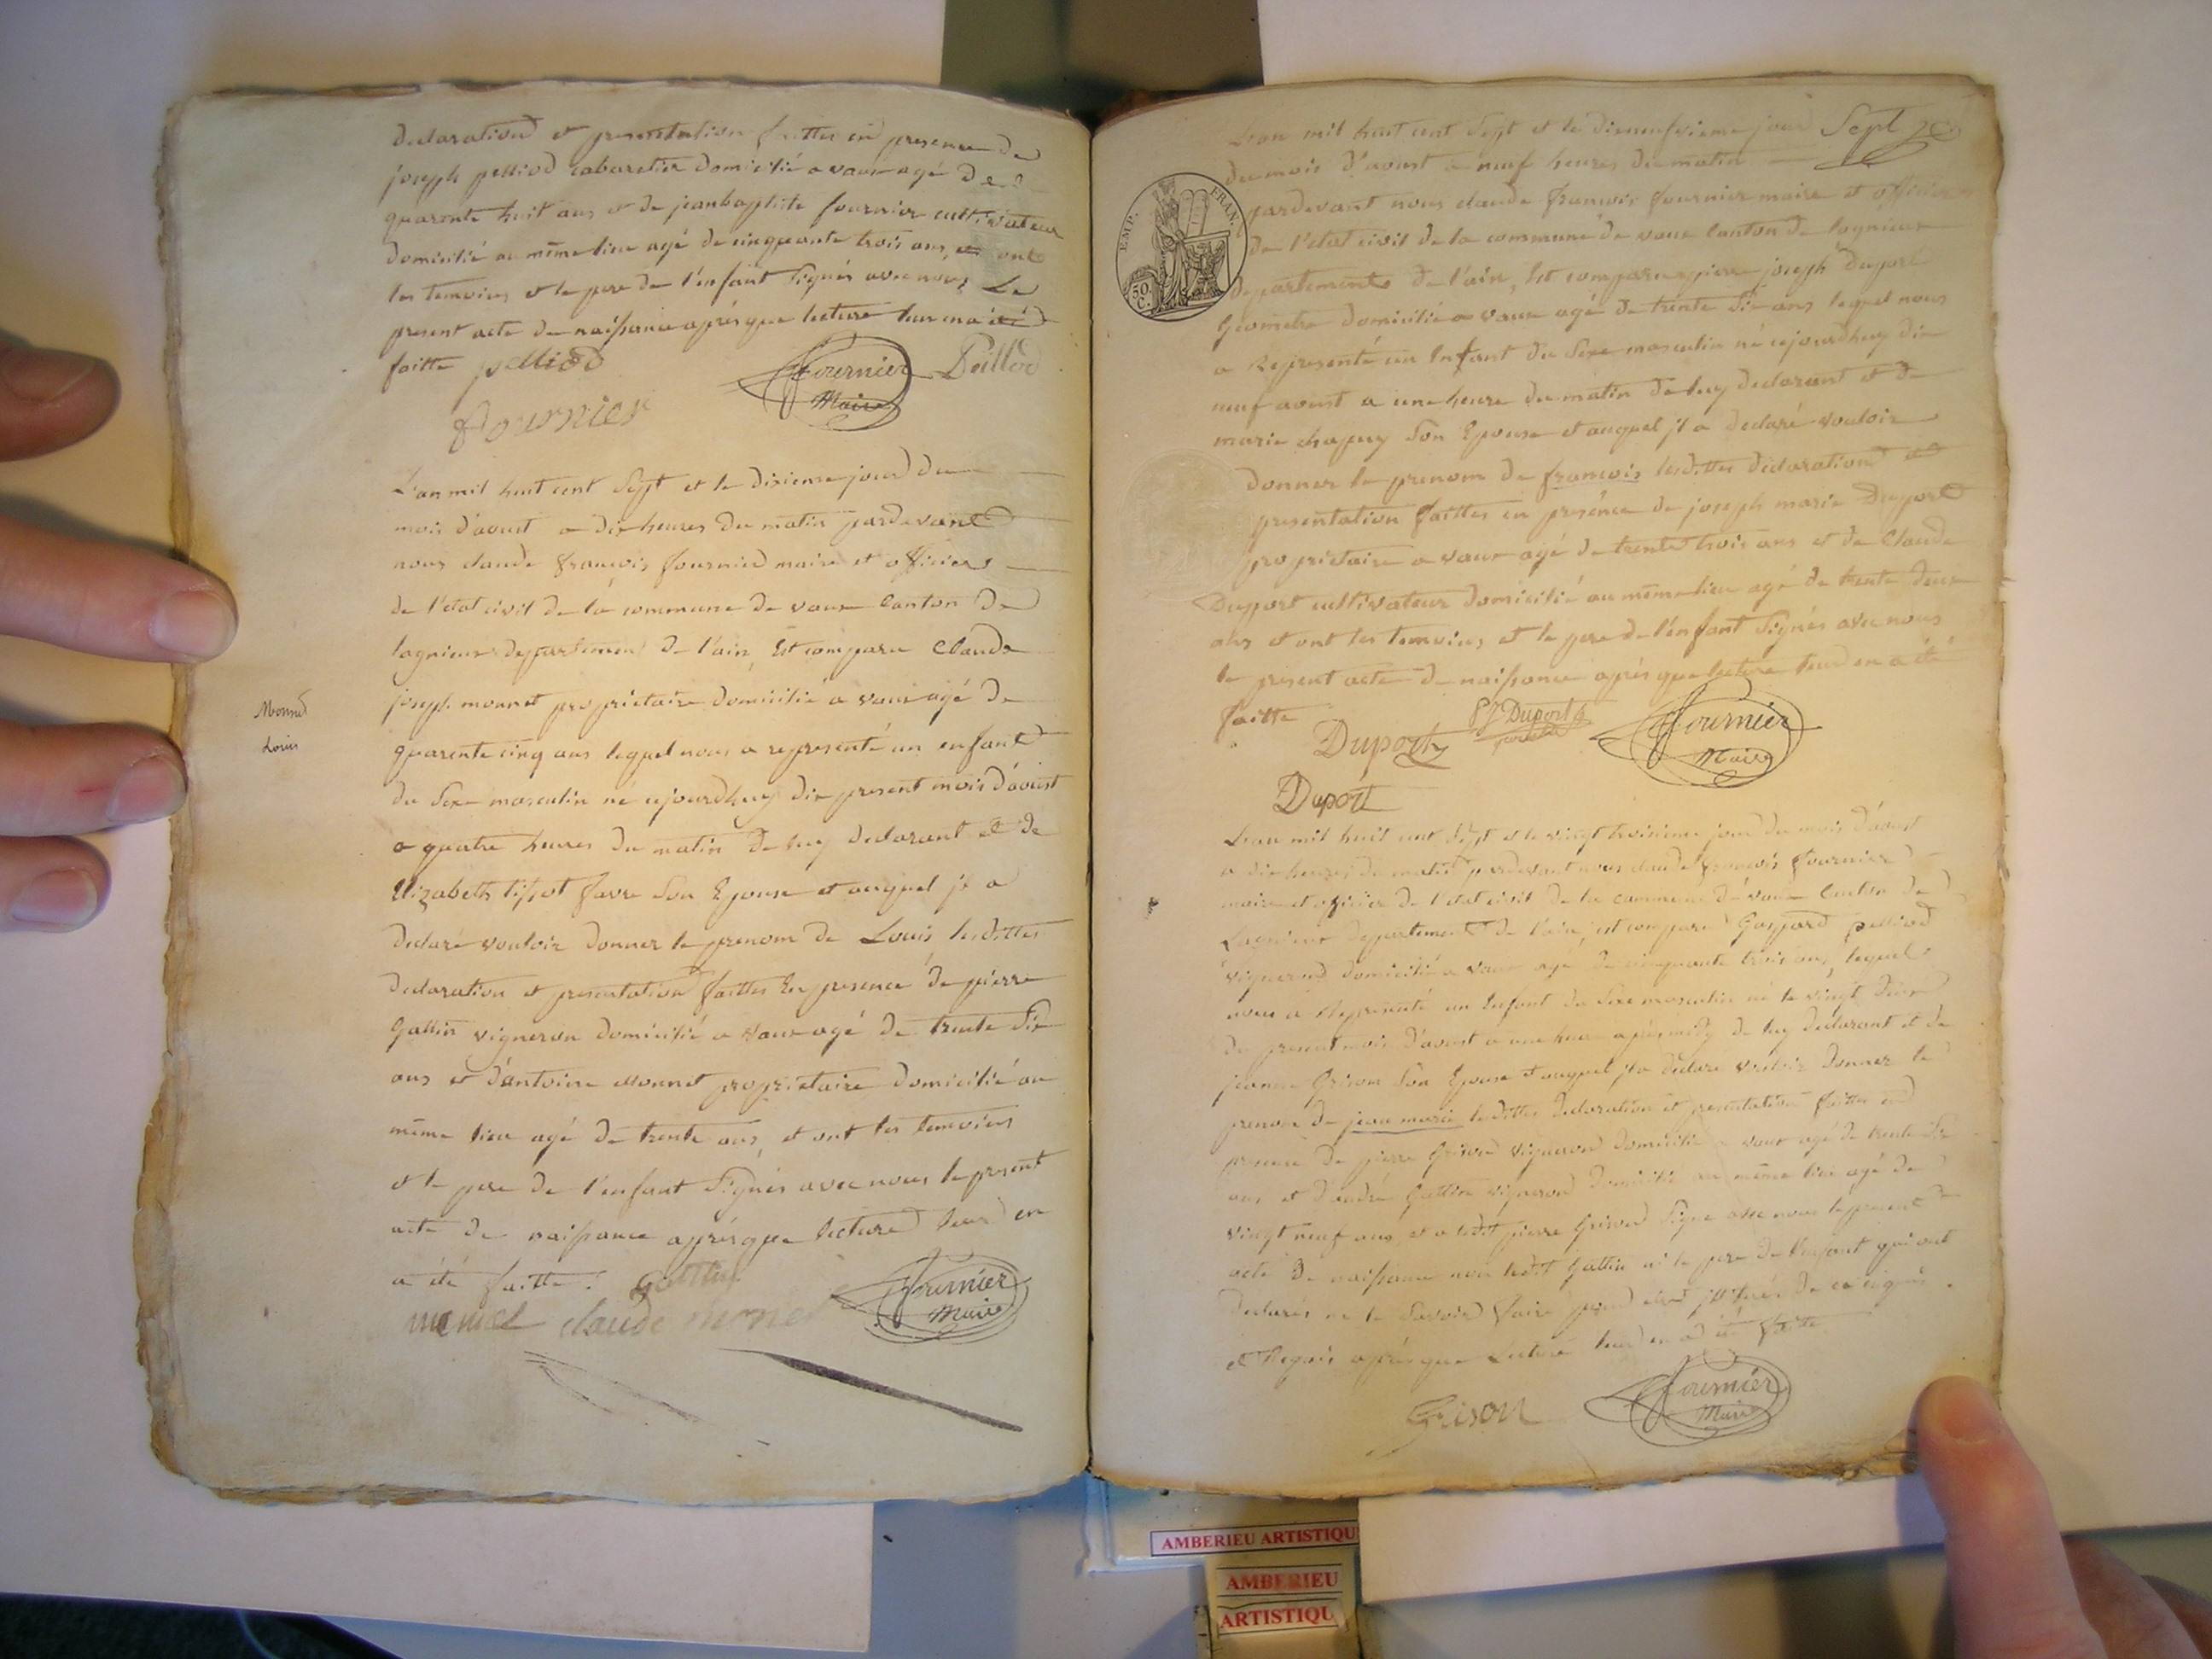 declaration et presentation faittes en presence de
joseph pelliod cabaretier domicilié a vaux agé de
quarante huit ans et de jean baptiste fournier cultivateur
domicilié au même lieu agé de cinquante trois ans, et ont
les temoins et le pere de l'enfant signés avec nous Le
present acte de naissance aprés que lecture leur en a été
faitte pelliod
Fournier Maire
Peillod
Fournier
L'an mil huit cent sept et le dixieme jour du
mois d'aoust a dix heures du matin pardevant
nous claude françois fournier maire et officier
de l'etat civil de la commune de vaux Canton de
lagnieux departement de l'ain, Est comparu Claude
joseph monnet proprietaire domicilié a vaux agé de
quarente cinq ans lequel nous a representé un enfant
du sexe masculin né cejourdhuy dix present mois d'aoust
a quatre heures du matin de luy declarant et de
Elizabeth tissot favre son Epouse et auquel jl a
declaré vouloir donner le prenom de Louis lesdittes
declaration et presentation faittes En presence de pierre
Gattin vigneron domicilié a vaux agé de trente six
ans et d'antoine Monnet proprietaire domicilié au
même lieu agé de trente ans, et ont les temoins
et le pere de l'enfant signés avec nous le present
acte de naissance aprés que lecture leur en
a été faitte. Gattin
monnet claude monet
Fournier Maire
Monnet
Louis
L'an mil huit cent sept et le dixneufvieme jour
du mois d'aoust a neuf heures du matin
pardevant nous claude francois fournier maire et officier
de l'etat civil de la commune de vaux Canton de lagnieux
departement de l'ain, Est comparu pierre joseph Duport
Géometre domicilié a vaux agé de trente six ans lequel nous
a Representé un Enfant du sexe masculin né cejourdhuy dix
neuf aoust a une heure du matin de luy declarant et de
marie chapuy son Epouse et auquel jl a declaré vouloir
donner le prenom de francois lesdittes declaration et
presentation faittes en présence de joseph marie Duport
proprietaire a vaux agé de trente trois ans et de Claude
Duport cultivateur domicilié au même lieu agé de trente deux
ans et ont les temoins et le pere de l'enfant signés avec nous
le present acte de naissance aprés que lecture leur en a été
faitte
Duport
PJ Duport
Fournier Maire
Duport
Sept
EMP. FRAN.
50 C.
L'an mil huit cent sept et le vingt troisieme jour du mois d'aoust
a dix heures du matin pardevant nous claude francois fournier
maire et officier de l'etat civil de la commune de vaux Canton de
Lagnieux departement de l'ain, est comparu Gaspard pelliod
vigneron domicilié a vaux agé de cinquante trois ans, lequel
nous a Representé un Enfant du sexe masculin né le vingt deux
du present mois d'aoust a une heure aprés midy de luy declarant et de
jeanne Grison son Epouse et auquel jl a declaré vouloir donner le
prenom de jean marie lesdittes declaration et presentation faittes en
presence de pierre Grison vigneron domicilié a vaux agé de trente six
ans et d'andré Gattin vigneron domicilié au même lieu agé de
vingt neuf ans, et a ledit pierre Grison signé avec nous le present
acte de naissance non ledit Gattin ni le pere de l'enfant qui ont
declarés ne le savoir faire pour etre jllitérés de ce enquis
et Requis aprés que Lecture leur en a été faitte
Grison
Fournier Maire
AMBERIEU ARTISTIQU
AMBERIEU
ARTISTIQU